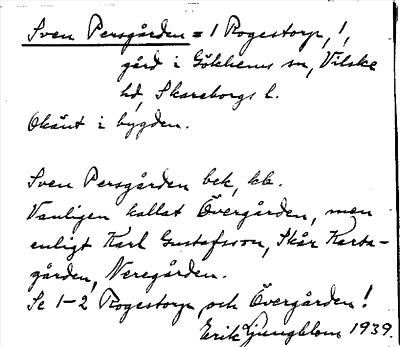 Sven Persgården = 1 Rogestorp, !,
gård i Gökhems sn, Vilske
hd, Skaraborgs l.
Okänt i bygden.
Sven Persgården bek, kb.
Vanligen kallat Övergården, men
enligt Karl Gustafsson, Skår Karta-
gården, Neregården.
Se 1-2 Rogestorp och Övergården!
Erik Ljungblom 1939.